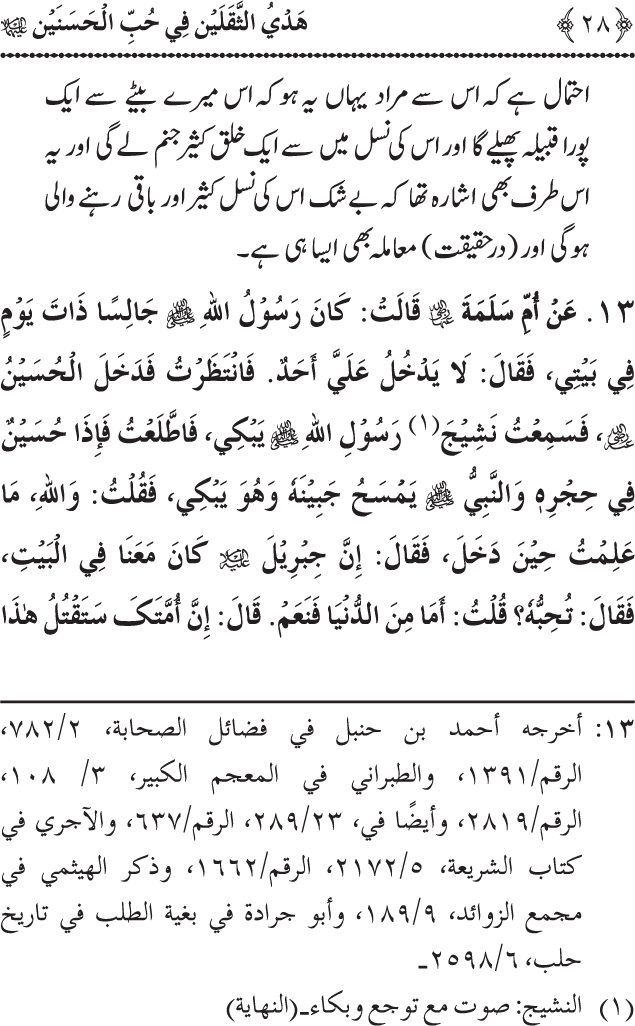 ﴿٢٨﴾ هَدْيُ الثَّقَلَيْن فِي حُبِّ الْحَسَنَيْن
احتمال ہے کہ اس سے مراد یہاں یہ ہو کہ اس میرے بیٹے سے ایک
پورا قبیلہ پھیلے گا اور اس کی نسل میں سے ایک خلق کثیر جنم لے گی اور یہ
اس طرف بھی اشارہ تھا کہ بے شک اس کی نسل کثیر اور باقی رہنے والی
ہوگی اور (در حقیقت) معاملہ بھی ایسا ہی ہے۔
١٣. عَنْ أُمِّ سَلَمَةَ قَالَتْ: كَانَ رَسُوْلُ اللهِ ﷺ جَالِسًا ذَاتَ يَوْمٍ
فِي بَيْتِي، فَقَالَ: لَا يَدْخُلُ عَلَيَّ أَحَدٌ. فَانْتَظَرْتُ فَدَخَلَ الْحُسَيْنُ
، فَسَمِعْتُ نَشِيْجَ(١) رَسُوْلِ اللهِ ﷺ يَبْكِي، فَاطَّلَعْتُ فَإِذَا حُسَيْنٌ
فِي حِجْرِهٖ وَالنَّبِيُّ ﷺ يَمْسَحُ جَبِيْنَهٗ وَهُوَ يَبْكِي، فَقُلْتُ: وَاللهِ، مَا
عَلِمْتُ حِيْنَ دَخَلَ، فَقَالَ: إِنَّ جِبْرِيْلَ كَانَ مَعَنَا فِي الْبَيْتِ،
فَقَالَ: تُحِبُّهٗ؟ قُلْتُ: أَمَا مِنَ الدُّنْيَا فَنَعَمْ. قَالَ: إِنَّ أُمَّتَکَ سَتَقْتُلُ هٰذَا
١٣: أخرجه أحمد بن حنبل في فضائل الصحابة، ٧٨٢/٢،
الرقم/١٣٩١، والطبراني في المعجم الكبير، ٣/ ١٠٨،
الرقم/٢٨١٩، وأيضًا في، ٢٨٩/٢٣، الرقم/٦٣٧، والآجري في
كتاب الشريعة، ٢١٧٢/٥، الرقم/١٦٦٢، وذكر الهيثمي في
مجمع الزوائد، ١٨٩/٩، وأبو جرادة في بغية الطلب في تاريخ
حلب، ٢٥٩٨/٦ـ
(١) النشيج: صوت مع توجع وبكاءـ(النهاية)